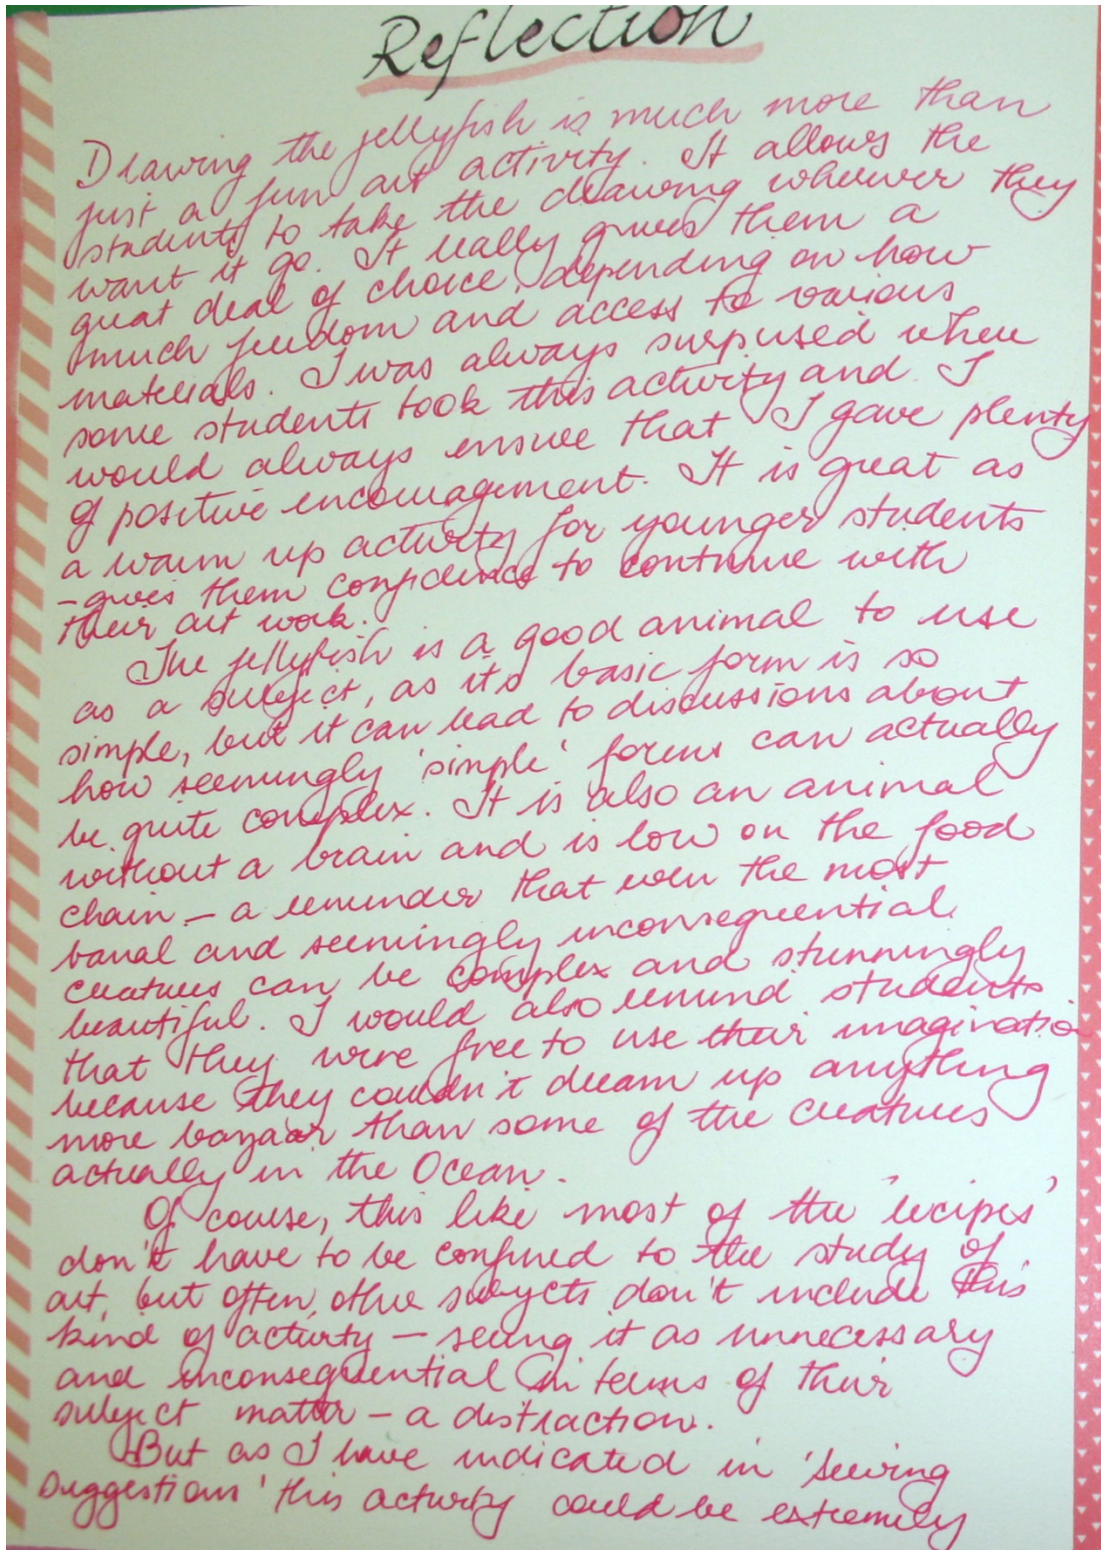 Reflection
Drawing the jellyfish is much more than
just a fun art activity. It allows the
students to take the drawing wherever they
want it go. It really gives them a
great deal of choice, depending on how
much freedom and access to various
materials. I was always surprised when
some students took this activity and I
would always ensure that I gave plenty
of positive encouragement. It is great as
a warm up activity for younger students
- gives them confidence to continue with
their art work.
The jellyfish is a good animal to use
as a subject, as it's basic form is so
simple, but it can lead to discussions about
how seemingly 'simple' forms can actually
be quite complex. It is also an animal
without a brain and is low on the food
chain – a reminder that even the most
banal and seemingly inconsequential
creatures can be complex and stunningly
beautiful. I would also remind students
that they were free to use their imaginatio
because they couldn't dream up anything
more bazaar than some of the creatures
actually in the Ocean.
Of course, this like most of the 'recipes'
don't have to be confined to the study of
art, but often, other subjects don't include this
kind of activity – seeing it as unnecessary
and inconsequential in terms of their
subject matter – a distraction.
But as I have indicated in 'serving
suggestions' this activity could be extremely